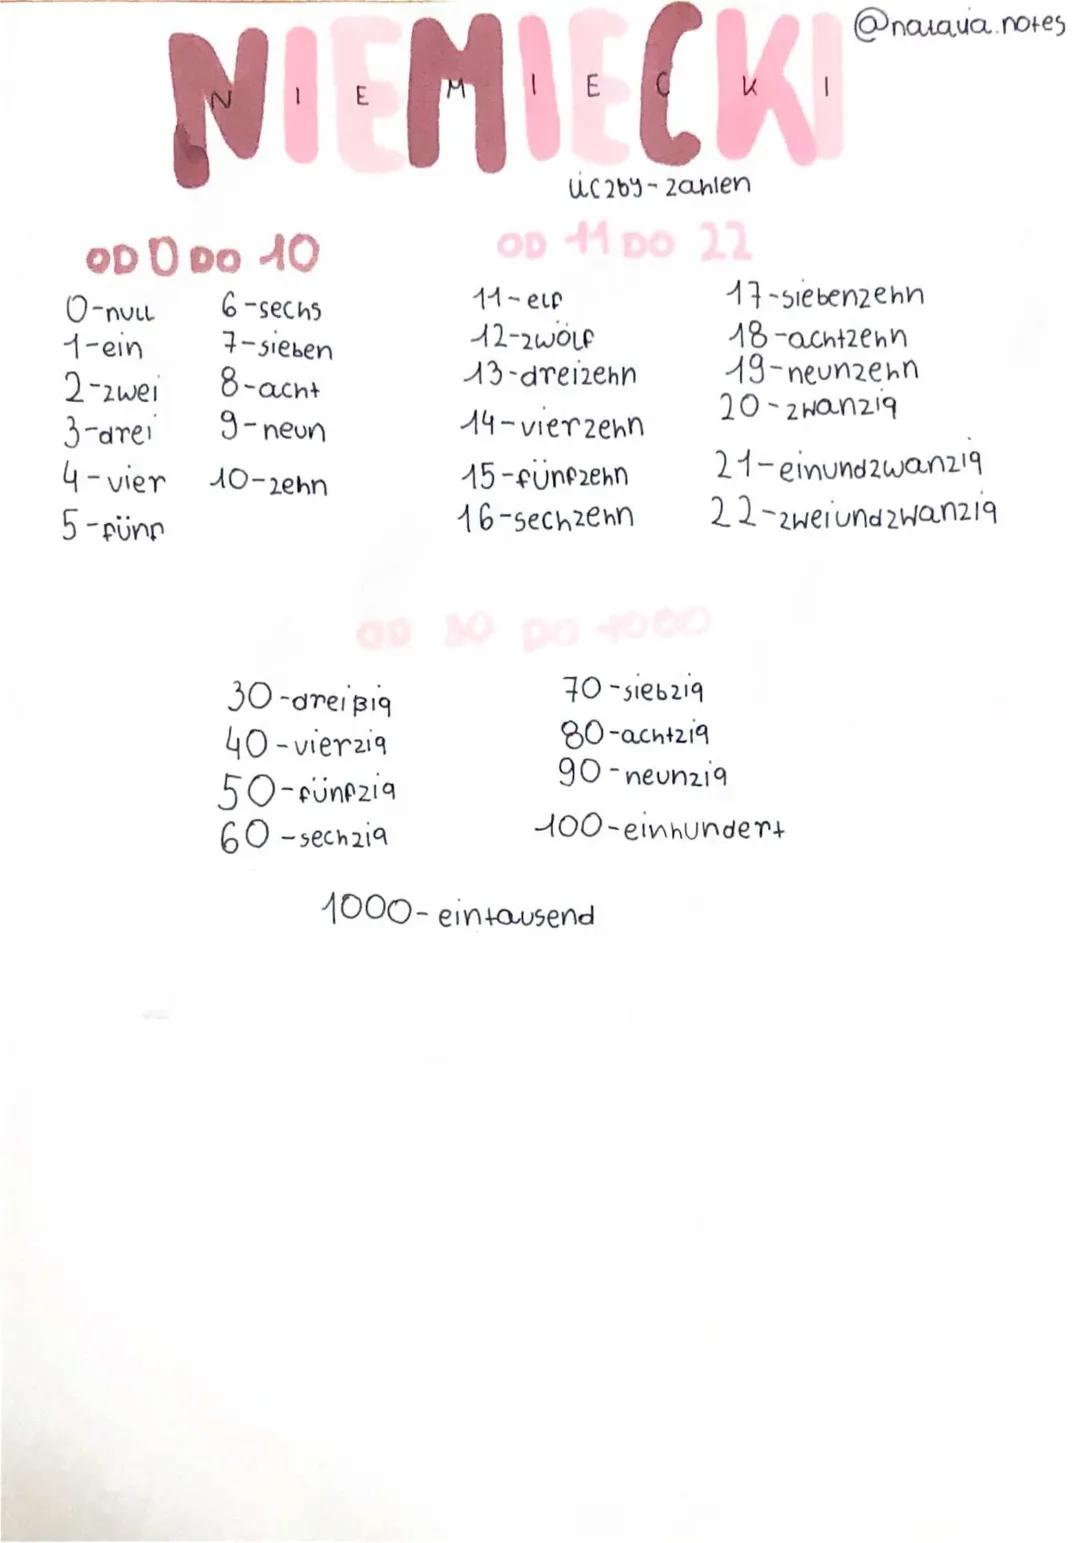 NIEMIECKI
N I E M I E C K I
liczby - zahlen
OD 0 DO 10
0-null
1-ein
2-zwei
3-drei
4-vier
5-fünf
6-sechs
7-sieben
8-acht
9-neun
10-zehn
OD 11 DO 22
11-elf
12-zwölf
13-dreizehn
14-vierzehn
15-fünfzehn
16-sechzehn
17-siebenzehn
18-achtzehn
19-neunzehn
20-zwanzig
21-einundzwanzig
22-zweiundzwanzig
OD 30 DO 1000
30-dreißig
40-vierzig
50-fünfzig
60-sechzig
70-siebzig
80-achtzig
90-neunzig
100-einhundert
1000-eintausend